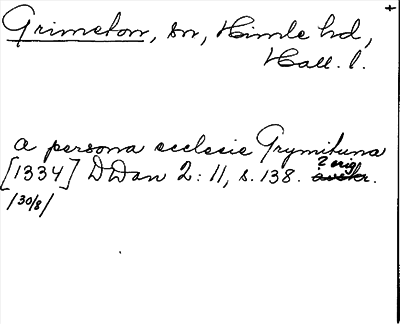 +
Grimeton, sn, Himle hd,
Hall. l.
a persona ecclesie Grymituna
2 orig
[1334] DDan 2: 11, s. 138. avskr.
/30/8/